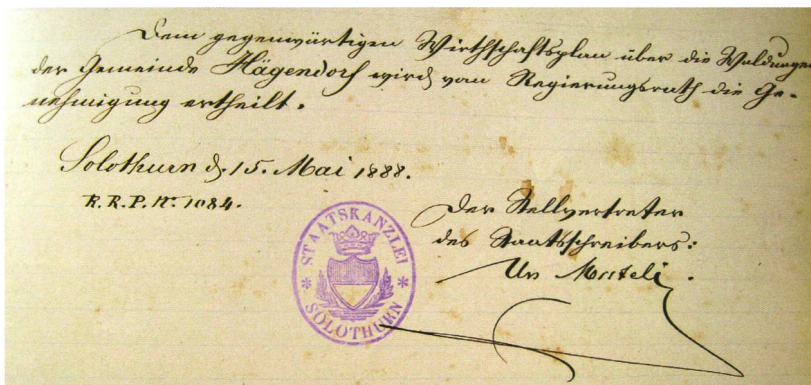 Dem gegenwärtigen Wirthschaftsplan über die Waldungen
der Gemeinde Hägendorf wird vom Regierungsrath die Ge-
nehmigung ertheilt.
Solothurn d. 15. Mai 1888.
R.R.P. No. 1084.
Der Stellvertreter
des Staatsschreibers:
STAATSKANZLEI
SOLOTHURN